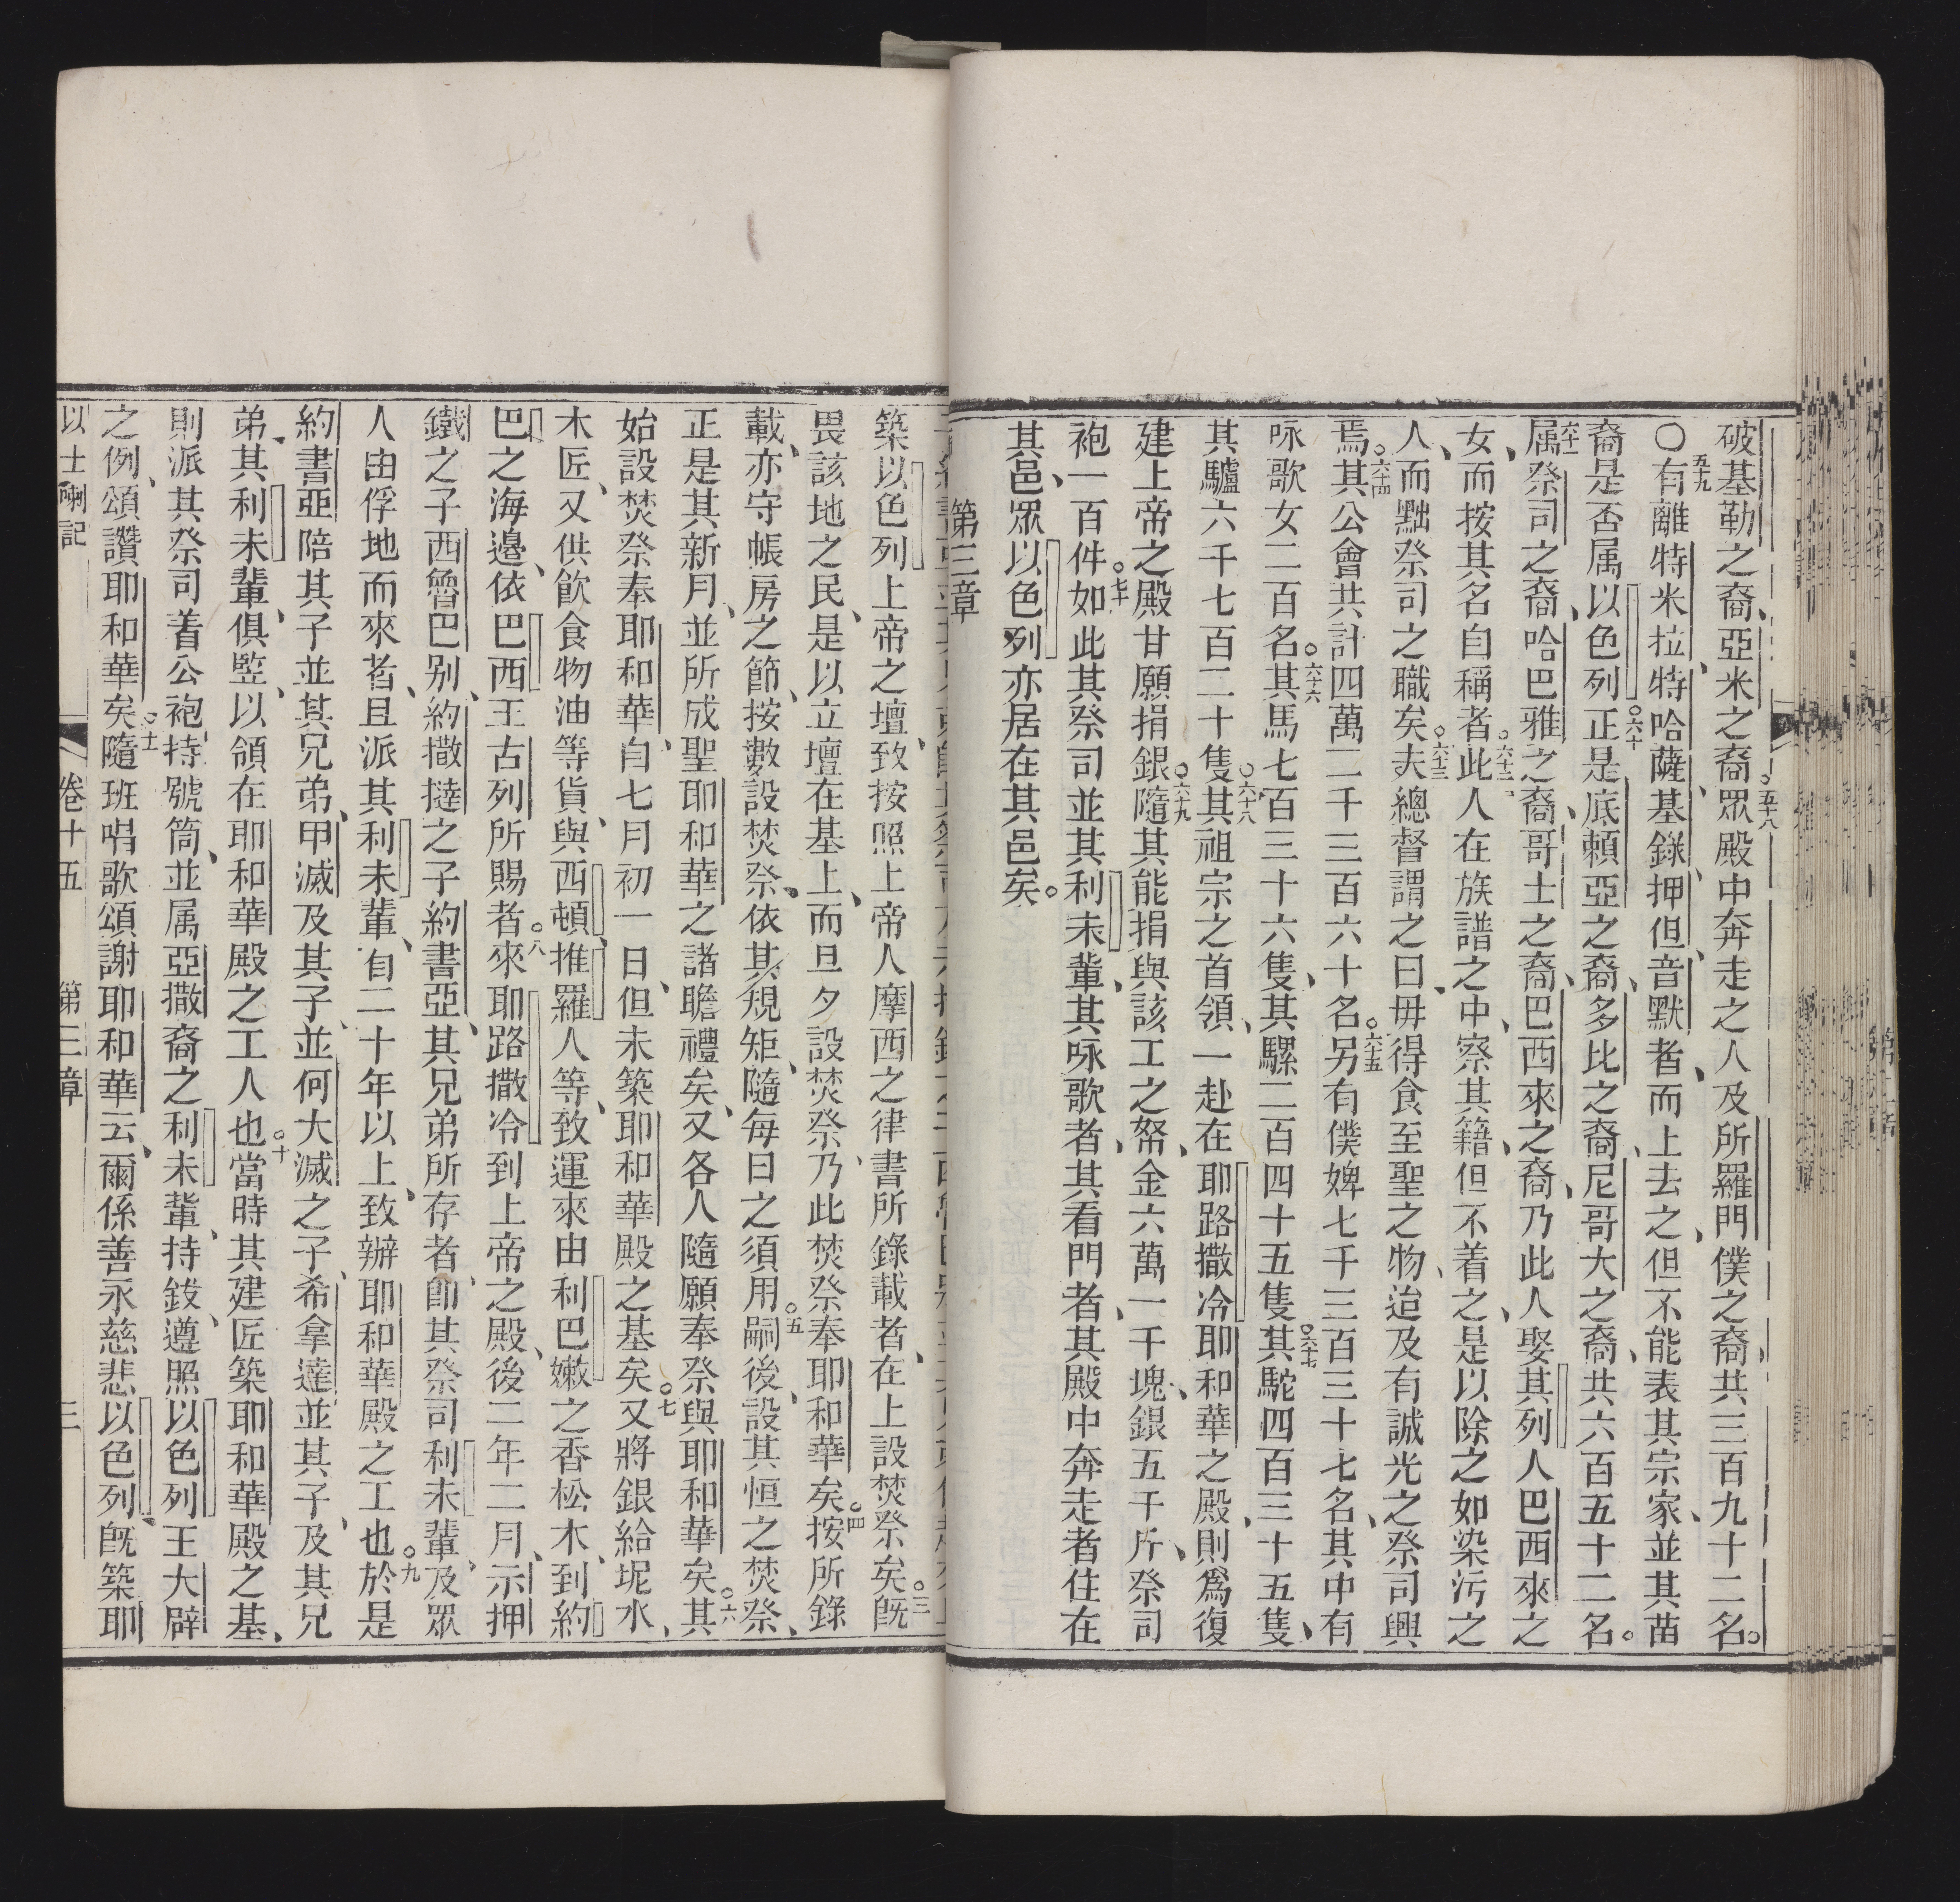 破基勒之裔、亞米之裔○五十八眾殿中奔走之人及所羅門僕之裔、共三百九十二名。
○五九有離特米拉、特哈薩、基錄、押但、音默者、而上去之、但不能表其宗家、並其苗
裔是否属以色列○六十正是底賴亞之裔、多比之裔、尼哥大之裔、共六百五十二名。
六十一属祭司之裔、哈巴雅之裔、哥士之裔、巴西來之裔、乃此人娶其列人巴西來之
女、而按其名自稱者○六十二此人在族譜之中、察其籍、但不着之、是以除之如染污之
人、而黜祭司之職矣○六十三夫總督謂之曰、毋得食至聖之物、迨及有誠光之祭司興
焉○六十四其公會共計四萬二千三百六十名○六十五另有僕婢七千三百三十七名、其中有
咏歌女二百名○六十六其馬七百三十六隻、其騾二百四十五隻○六十七其駝四百三十五隻、
其驢六千七百二十隻○六十八其祖宗之首領、一赴在耶路撒冷耶和華之殿、則為復
建上帝之殿甘願捐銀○六九隨其能捐與該工之帑、金六萬一千塊、銀五千斤、祭司
袍一百件○七十如此其祭司並其利未輩、其咏歌者、其看門者、其殿中奔走者住在
其邑、眾以色列亦居在其邑矣。
第三章
築以色列上帝之壇、致按照上帝人摩西之律書所錄載者、在上設焚祭矣○三既
畏該地之民、是以立壇在基上、而旦夕設焚祭、乃此焚祭奉耶和華矣○四按所錄
載、亦守帳房之節、按數設焚祭、依其規矩、隨每日之須用○五嗣後、設其恒之焚祭、
正是其新月、並所成聖耶和華之諸瞻禮矣、又各人隨願奉祭與耶和華矣○六其
始設焚祭奉耶和華、自七月初一日、但未築耶和華殿之基矣○七又將銀給坭水、
木匠、又供飲食物油等貨、與西頓、推羅人等、致運來由利巴嫩之香松木、到約
巴之海邊、依巴西王古列所賜者○八來耶路撒冷到上帝之殿、後二年二月、示押
鐵之子西魯巴別、約撒撻之子約書亞、其兄弟所存者、即其祭司利未輩、及眾
人由俘地而來者、且派其利未輩、自二十年以上、致辦耶和華殿之工也○九於是
約書亞陪其子並其兄弟、甲滅及其子、並何大滅之子、希拿達並其子、及其兄
弟、其利未輩、俱監、以領在耶和華殿之工人也○十當時其建匠築耶和華殿之基、
則派其祭司着公袍、持號筒、並属亞撒裔之利未輩、持鈸、遵照以色列王大辟
之例、頌讚耶和華矣○十一隨班唱歌頌謝耶和華云、爾係善永慈悲以色列、既築耶
以士喇記 卷十五 第三章 三